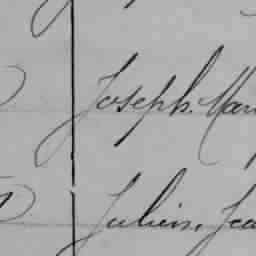 Joseph. Mar
Julien. Jea